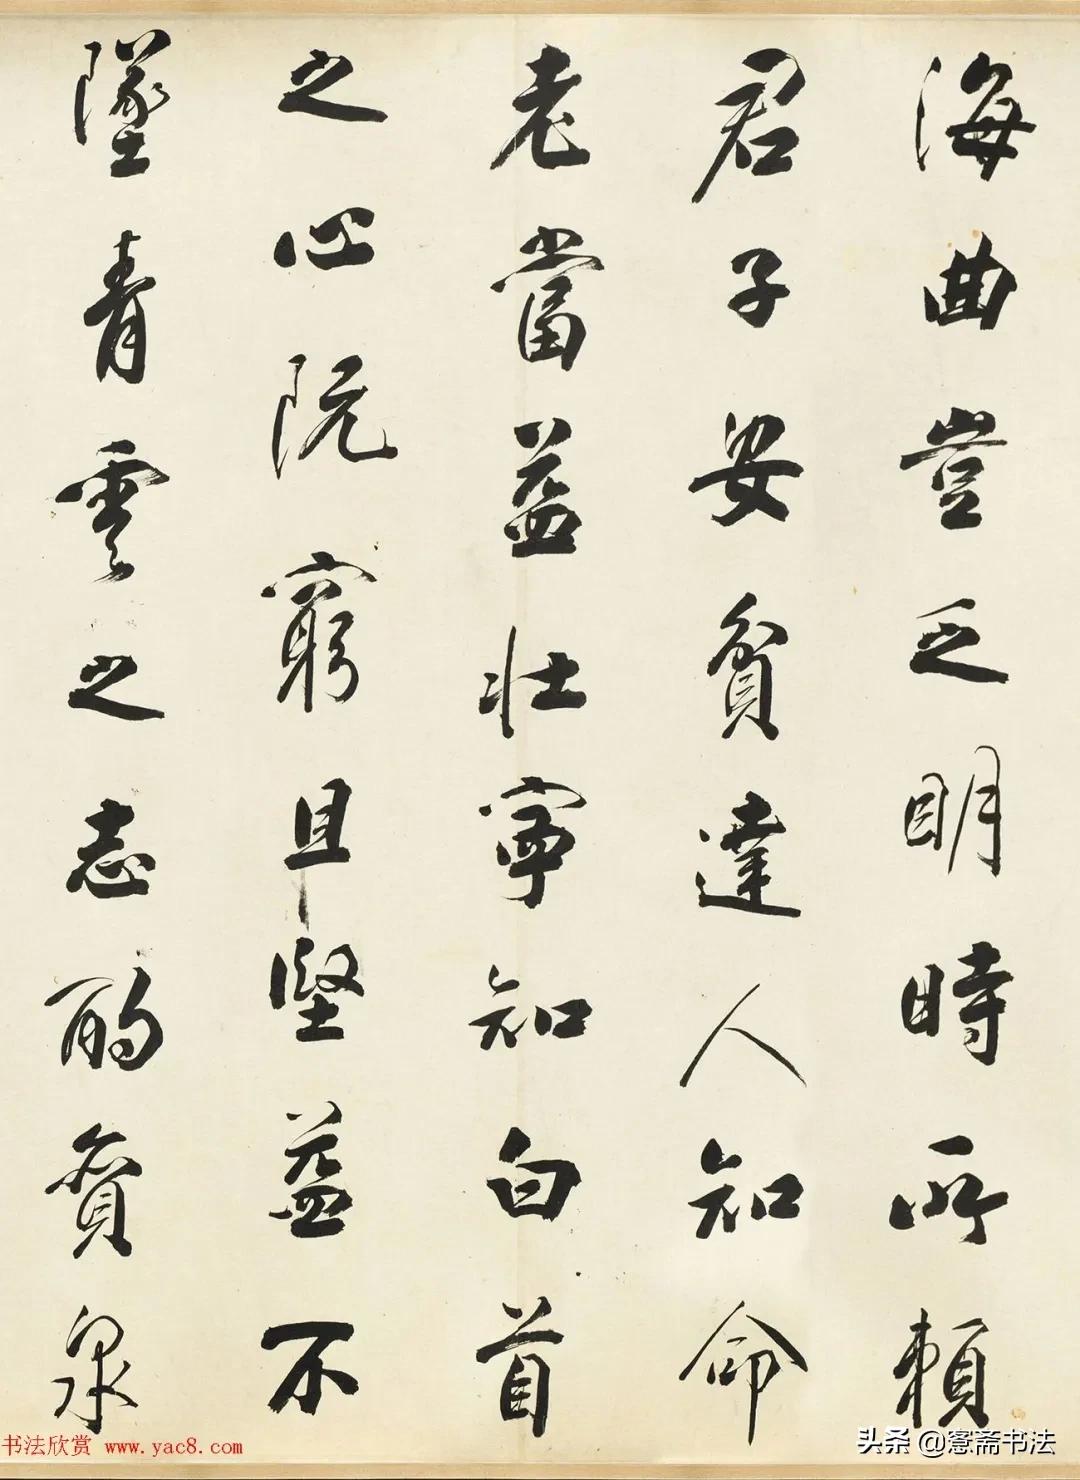 海曲豈乏明時所賴
君子安貧達人知命
老當益壯寧知白首
之心阮窮且堅益不
墜青雲之志酌貪泉
书法欣赏 www.yac8.com
头条 @窓斋书法